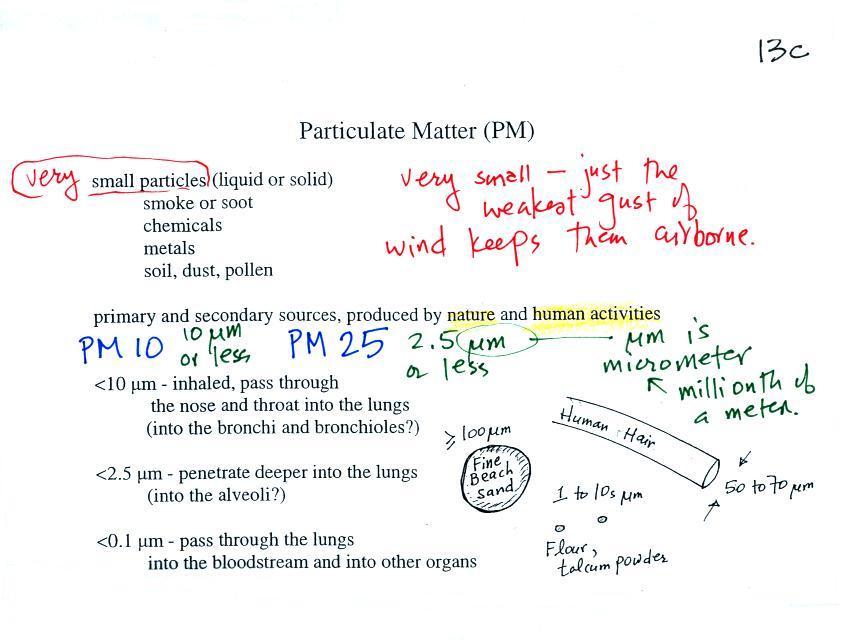 13c
Particulate Matter (PM)
very small particles (liquid or solid)
smoke or soot
chemicals
metals
soil, dust, pollen
very small - just the
weakest gust of
wind keeps them airborne.
primary and secondary sources, produced by nature and human activities
PM 10 10 μm
or less
PM 25 2.5 μm
or less
μm is
micrometer
millionth of
a meter.
<10 μm - inhaled, pass through
the nose and throat into the lungs
(into the bronchi and bronchioles?)
<2.5 μm - penetrate deeper into the lungs
(into the alveoli?)
<0.1 μm - pass through the lungs
into the bloodstream and into other organs
≥ 100 μm
Fine
Beach
sand
Human Hair
50 to 70 μm
1 to 10s μm
Flour,
talcum powder